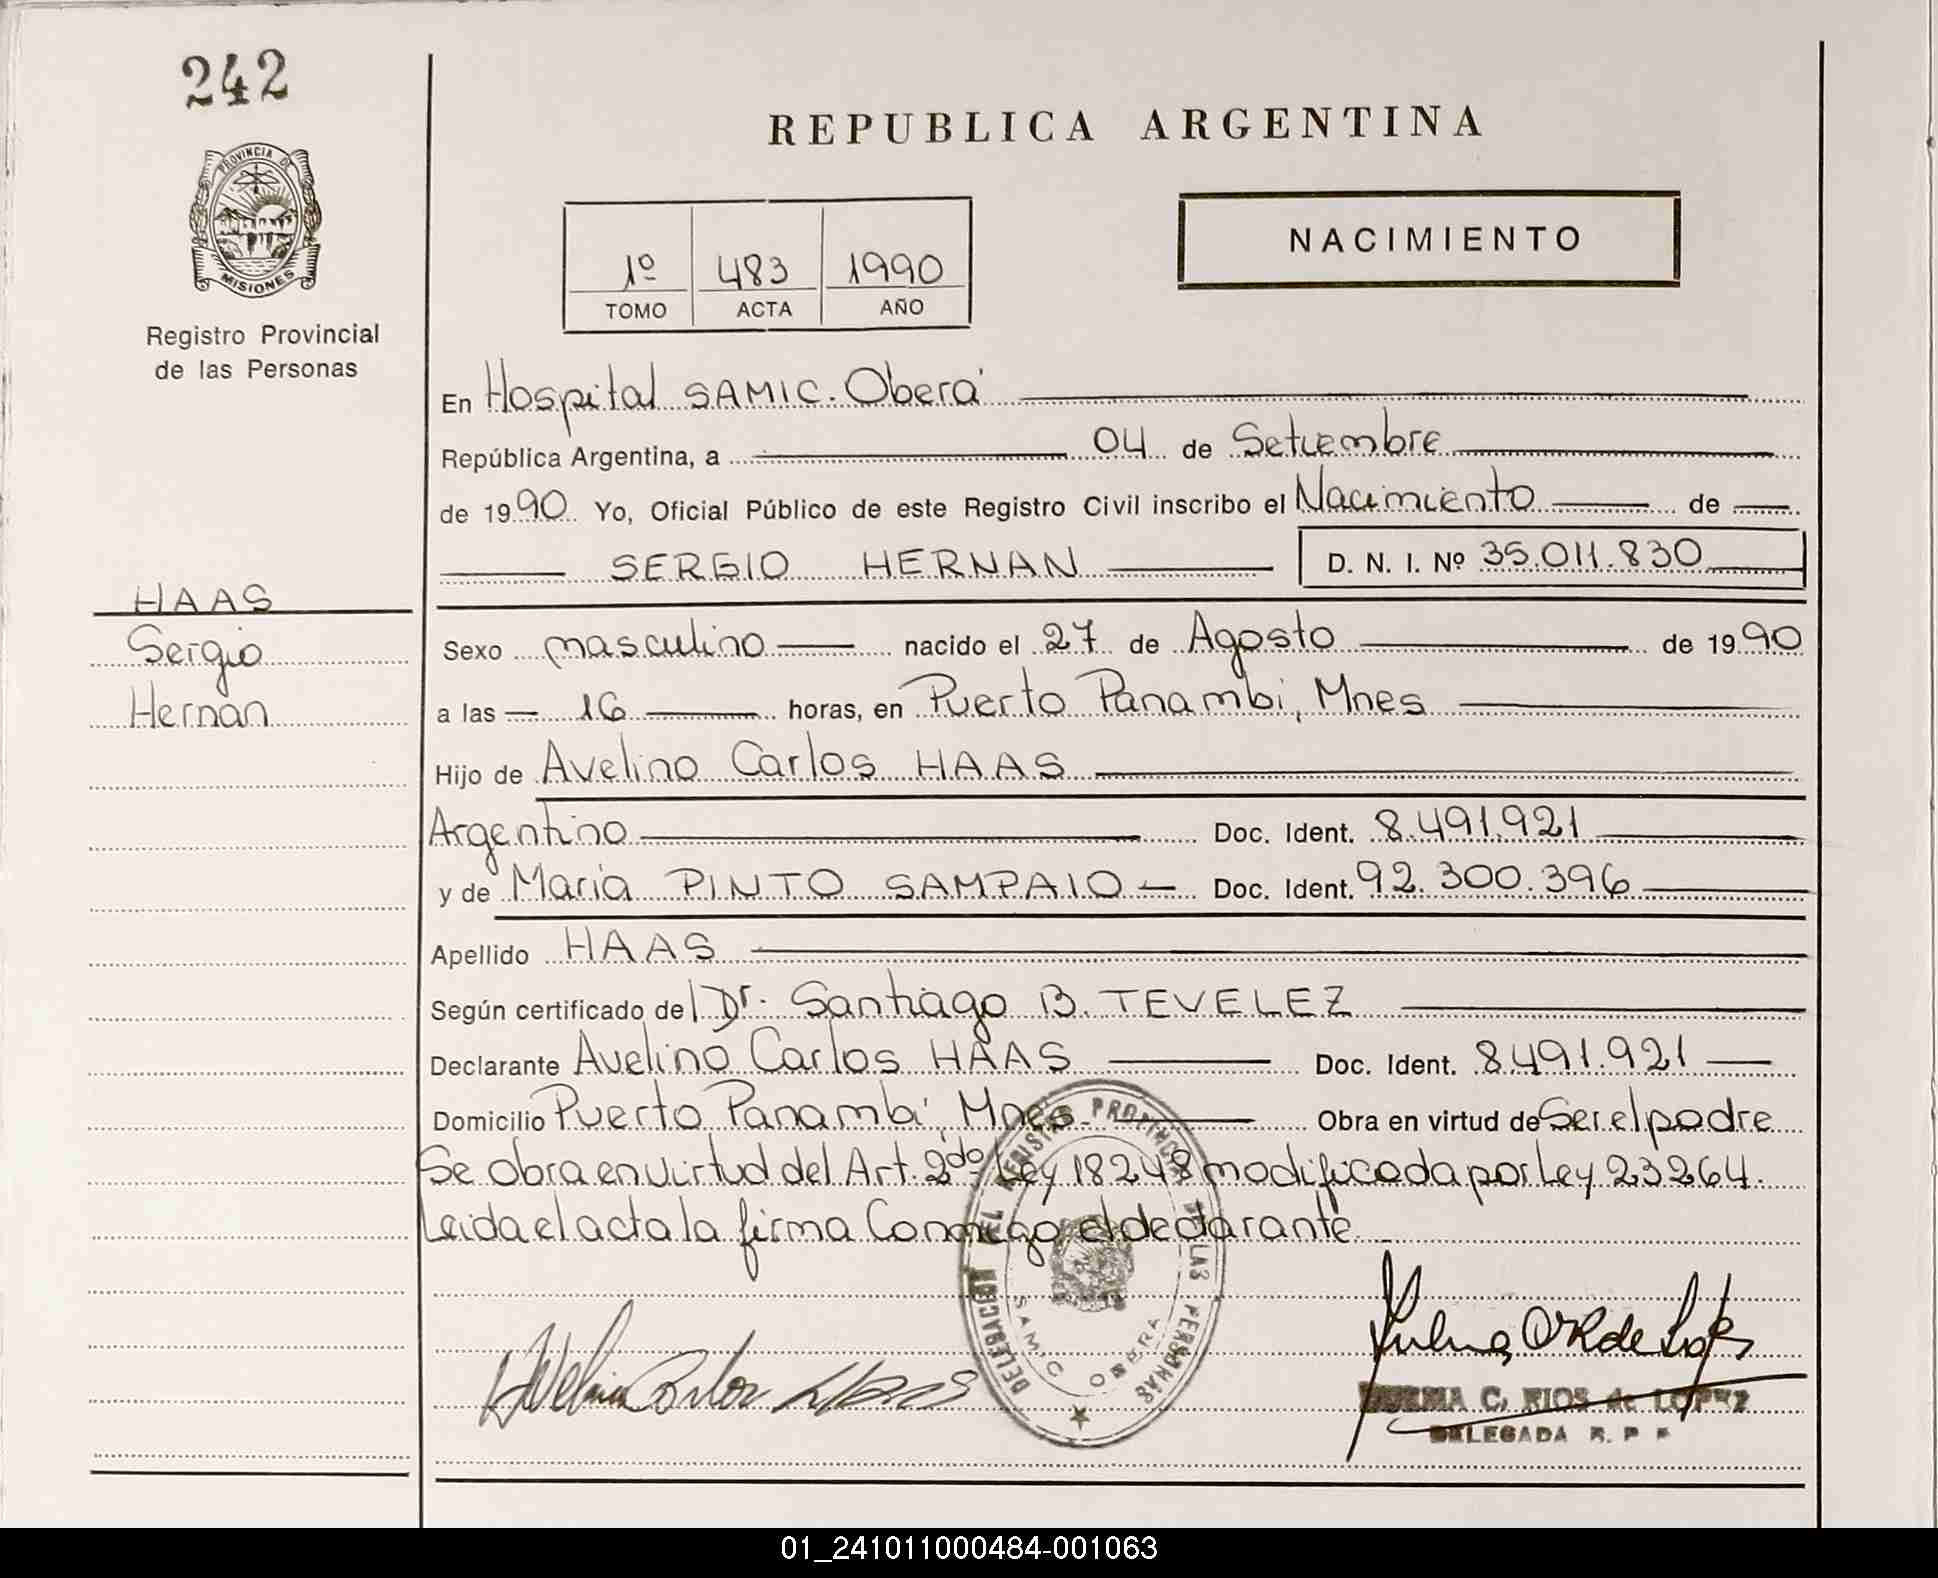 242
REPUBLICA ARGENTINA
PROVINCIA DE
MISIONES
Registro Provincial
de las Personas
1º 483 1990
TOMO ACTA AÑO
NACIMIENTO
En Hospital SAMIC. Oberá
República Argentina, a 04 de Setiembre
de 1990 Yo, Oficial Público de este Registro Civil inscribo el Nacimiento de
SERGIO HERNAN D. N. I. Nº 35.011.830
HAAS
Sergio
Hernan
Sexo masculino nacido el 27 de Agosto de 1990
a las 16 horas, en Puerto Panambi, Mnes
Hijo de Avelino Carlos HAAS
Argentino Doc. Ident. 8.491.921
y de Maria PINTO SAMPAIO Doc. Ident. 92.300.396
Apellido HAAS
Según certificado del Dr. Santiago B. TEVELEZ
Declarante Avelino Carlos HAAS Doc. Ident. 8.491.921
Domicilio Puerto Panambi, Mnes Obra en virtud de Ser el padre
Se obra en virtud del Art. 2do Ley 18248 modificada por Ley 23264.
Leida el acta la firma Conmigo el declarante.
DELEGACION DEL REGISTRO PROVINCIAL DE LAS PERSONAS
SAMIC OBERA
Avelino Carlos HAAS
C. RIOS de LOPEZ
DELEGADA R. P. P.
01_241011000484-001063